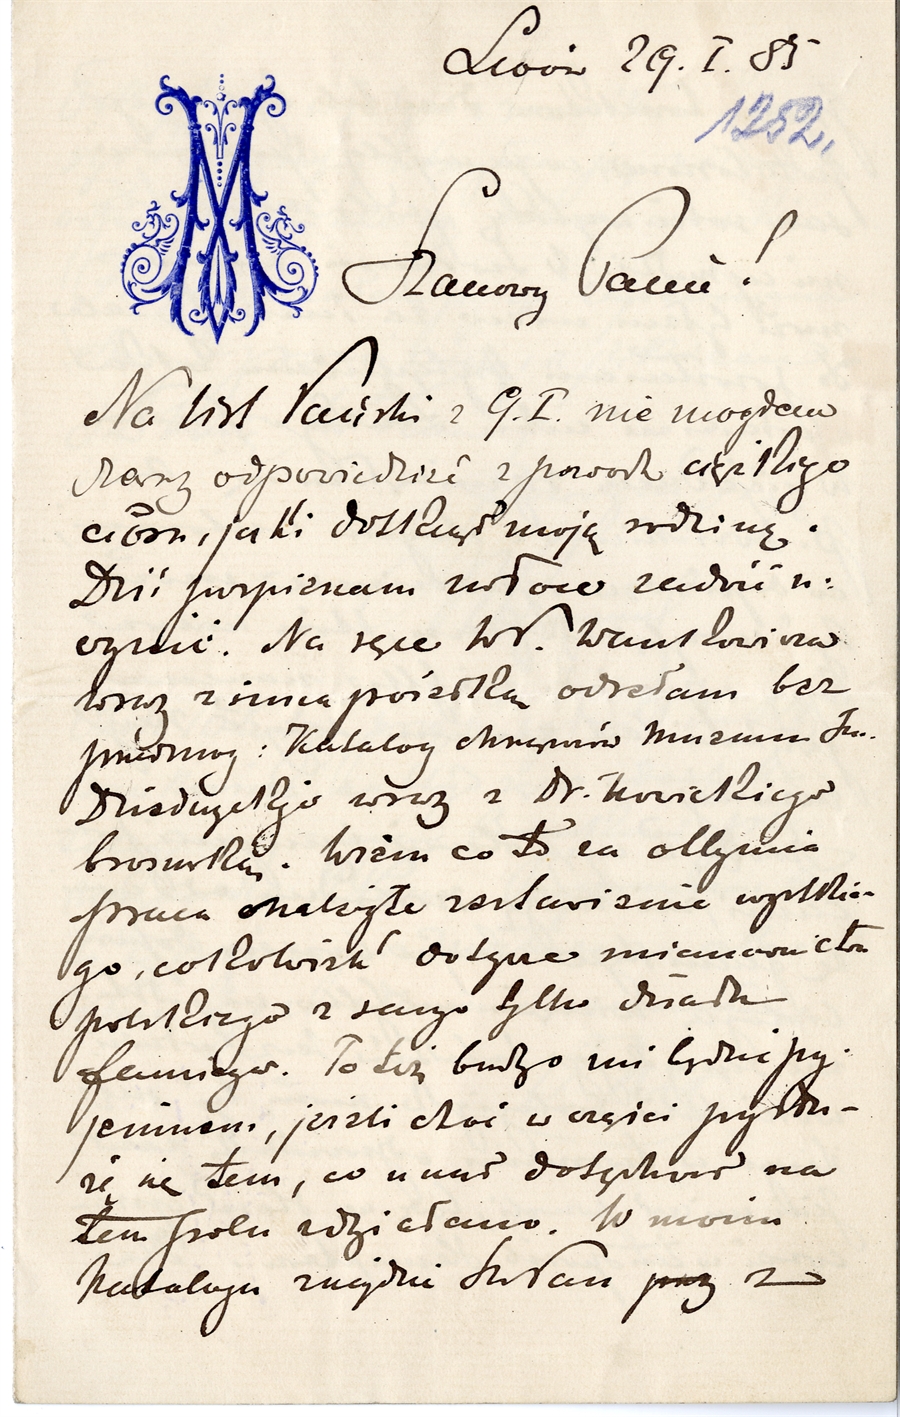 Lwów 29. I. 85
1252.
Szanowny Panie!
Na list Pański z 9. I. nie mogłem
zaraz odpowiedzieć z powodu ciężkiego
ciosu, jaki dotknął moją rodzinę.
Dziś pospieszam zadość u-
czynić. Na ręce WP. Wańkowicza
wraz z inną posyłką odesłam bez
: Katalog chrząszczów Muzeum Im.
Dzieduszyckiego wraz z Dr. Nowickiego
broszurką. Wiem co to za olbrzymia
praca należyte zestawienie wszystkie-
go, cokolwiek dotyczy mianownictwa
polskiego z samego tylko działu
. To też bardzo mi będzie przy-
jemnem, jeżeli choć w części przysłu-
żę się tem, co u nas dotychczas na
tem polu zdziałano. W moim
Katalogu znajdzie SzPan z